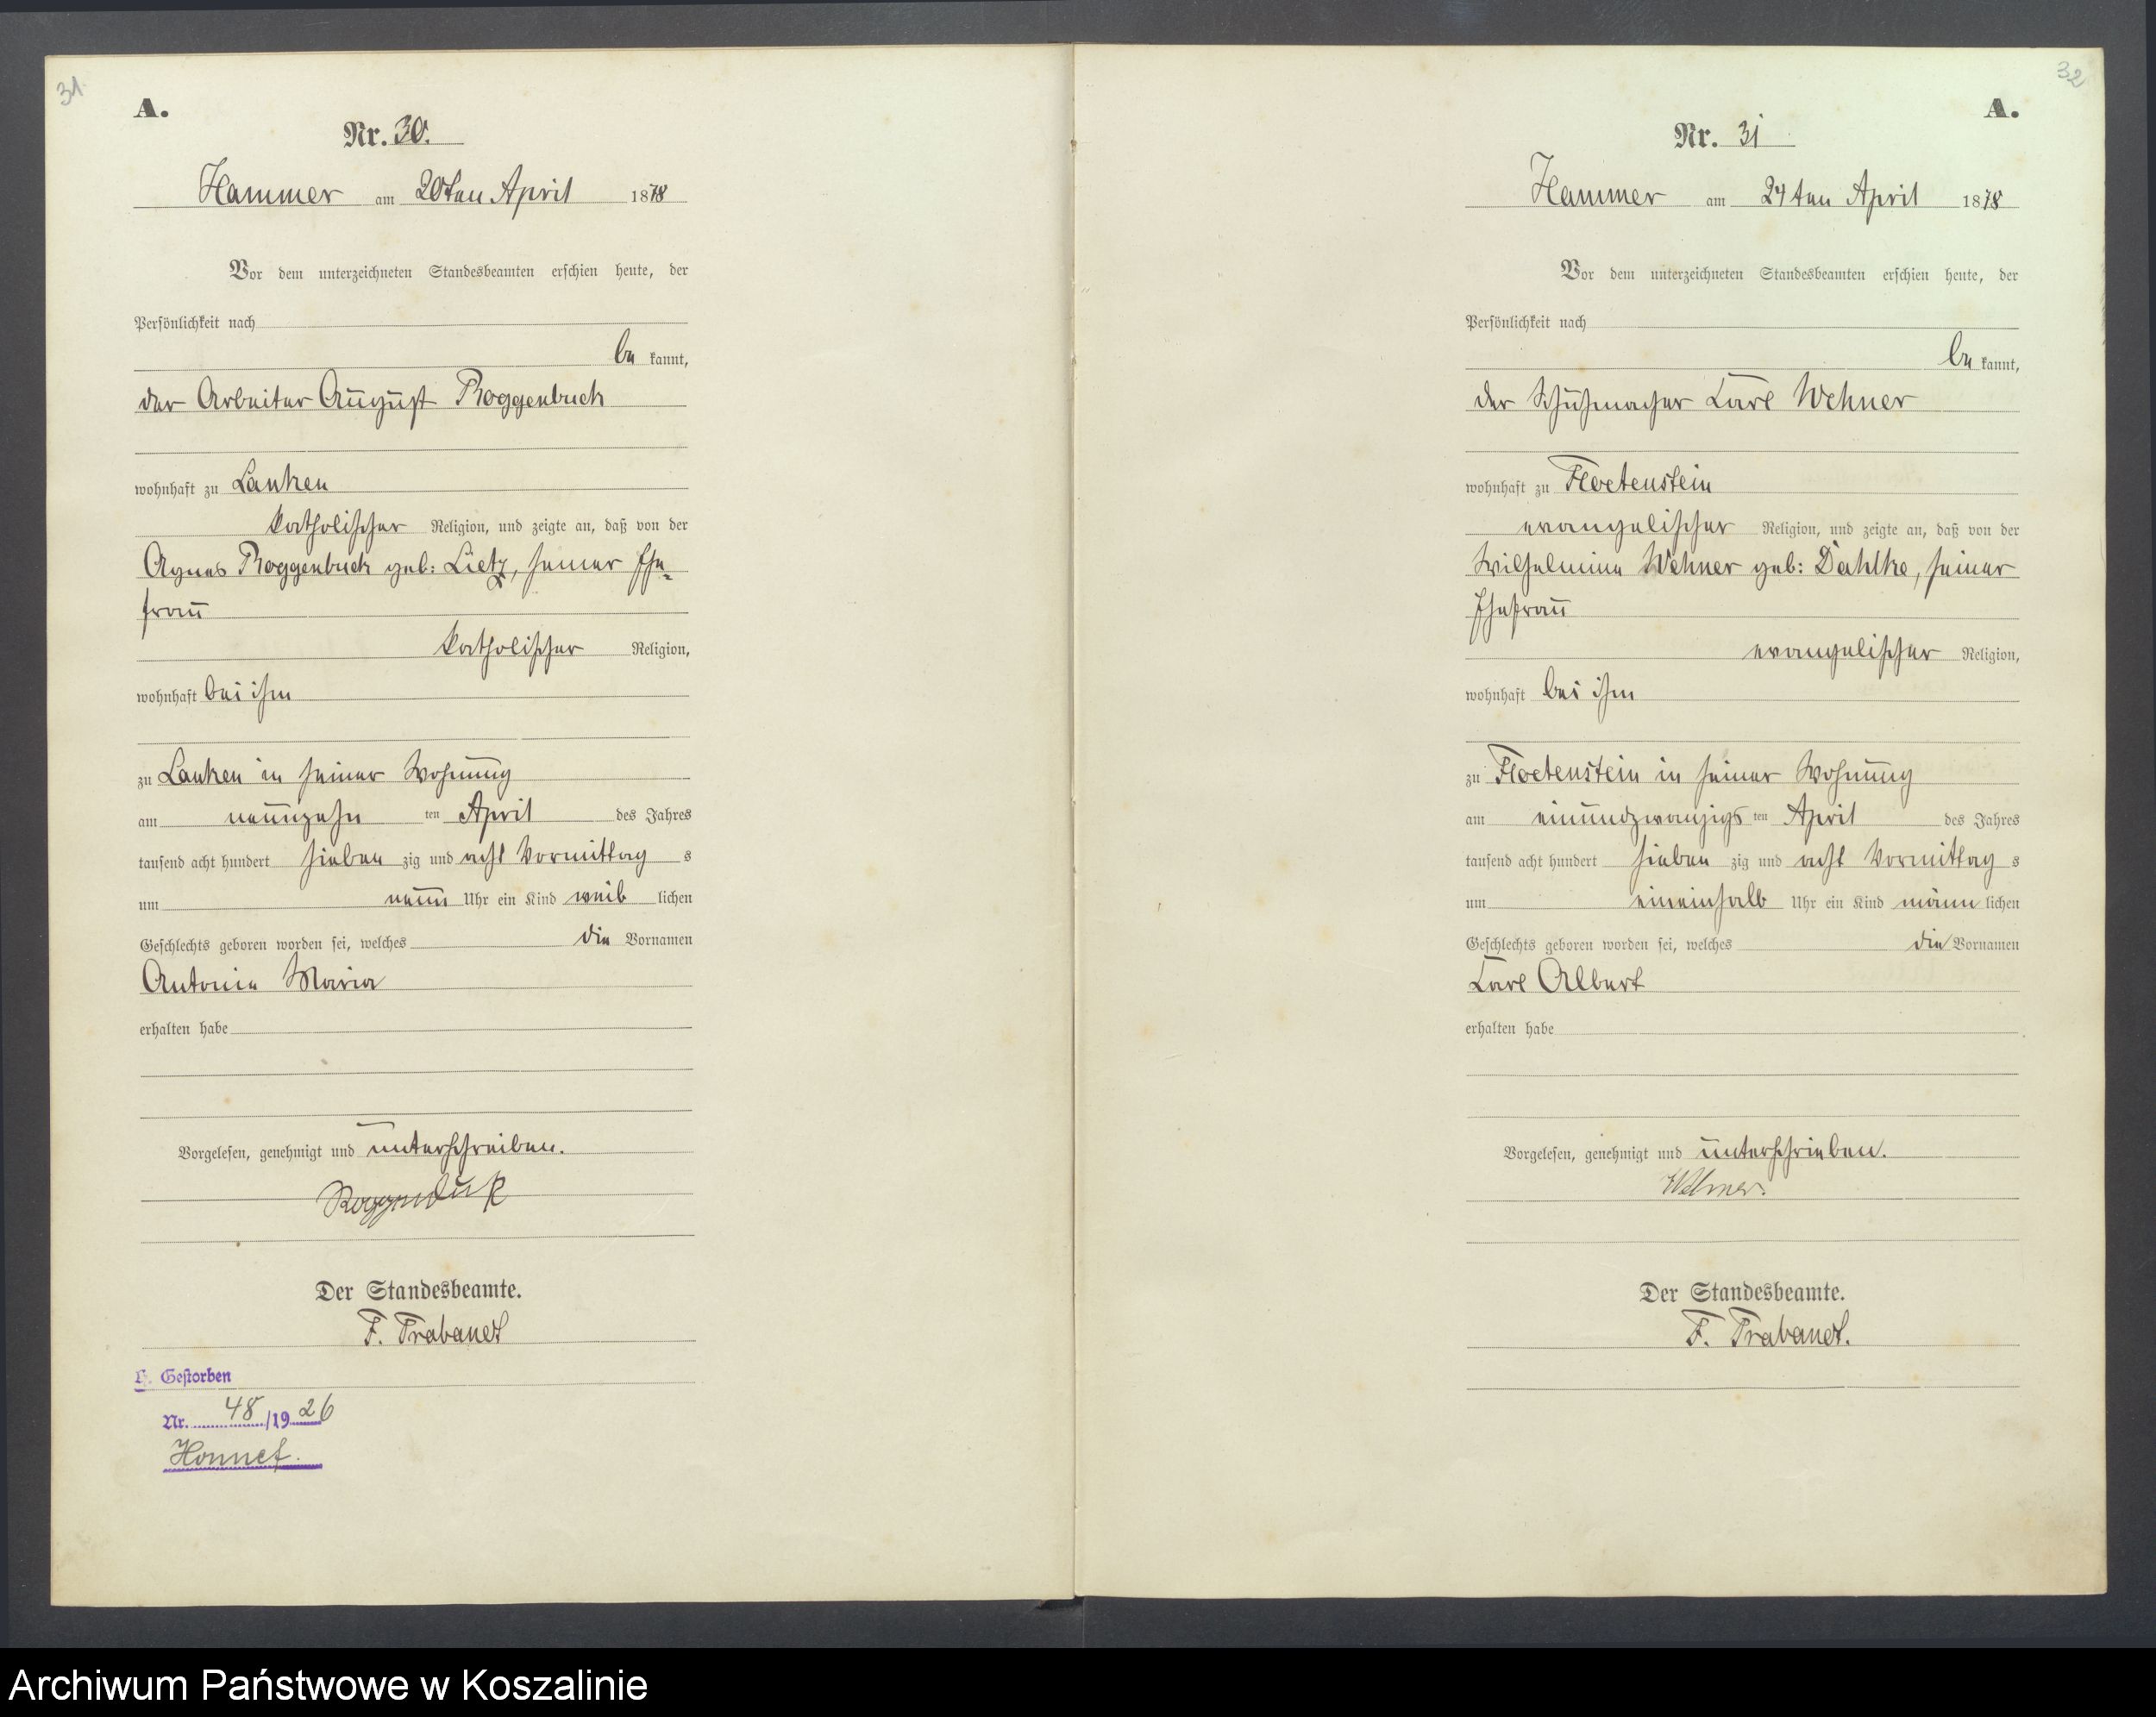 31
A.
Nr. 30.
Hammer am 20ten April 1878
Vor dem unterzeichneten Standesbeamten erschien heute, der
Persönlichkeit nach
be kannt,
der Arbeiter August Roggenbuck
wohnhaft zu Lanken
katholischer Religion, und zeigte an, daß von der
Agnes Roggenbuck geb: Lietz, seiner Ehe-
frau
katholischer Religion,
wohnhaft bei ihm
zu Lanken in seiner Wohnung
am neunzehn ten April des Jahres
tausend acht hundert sieben zig und acht Vormittag s
um neun Uhr ein Kind weib lichen
Geschlechts geboren worden sei, welches die Vornamen
Antonie Maria
erhalten habe
Vorgelesen, genehmigt und unterschreiben.
Roggenbuk
Der Standesbeamte.
F. Trabanet
Gestorben
Nr. 48/1926
Honnef.
32
A.
Nr. 31
Hammer am 24ten April 1878
Vor dem unterzeichneten Standesbeamten erschien heute, der
Persönlichkeit nach
be kannt,
der Schuhmacher Carl Wehner
wohnhaft zu Floetenstein
evangelischer Religion, und zeigte an, daß von der
Wilhelmine Wehner geb: Dahlke, seiner
Ehefrau
evangelischer Religion,
wohnhaft bei ihm
zu Floetenstein in seiner Wohnung
am einundzwanzigs ten April des Jahres
tausend acht hundert sieben zig und acht Vormittag s
um eineinhalb Uhr ein Kind männ lichen
Geschlechts geboren worden sei, welches die Vornamen
Carl Albert
erhalten habe
Vorgelesen, genehmigt und unterschrieben.
Wehner.
Der Standesbeamte.
F. Trabanet.
Archiwum Państwowe w Koszalinie